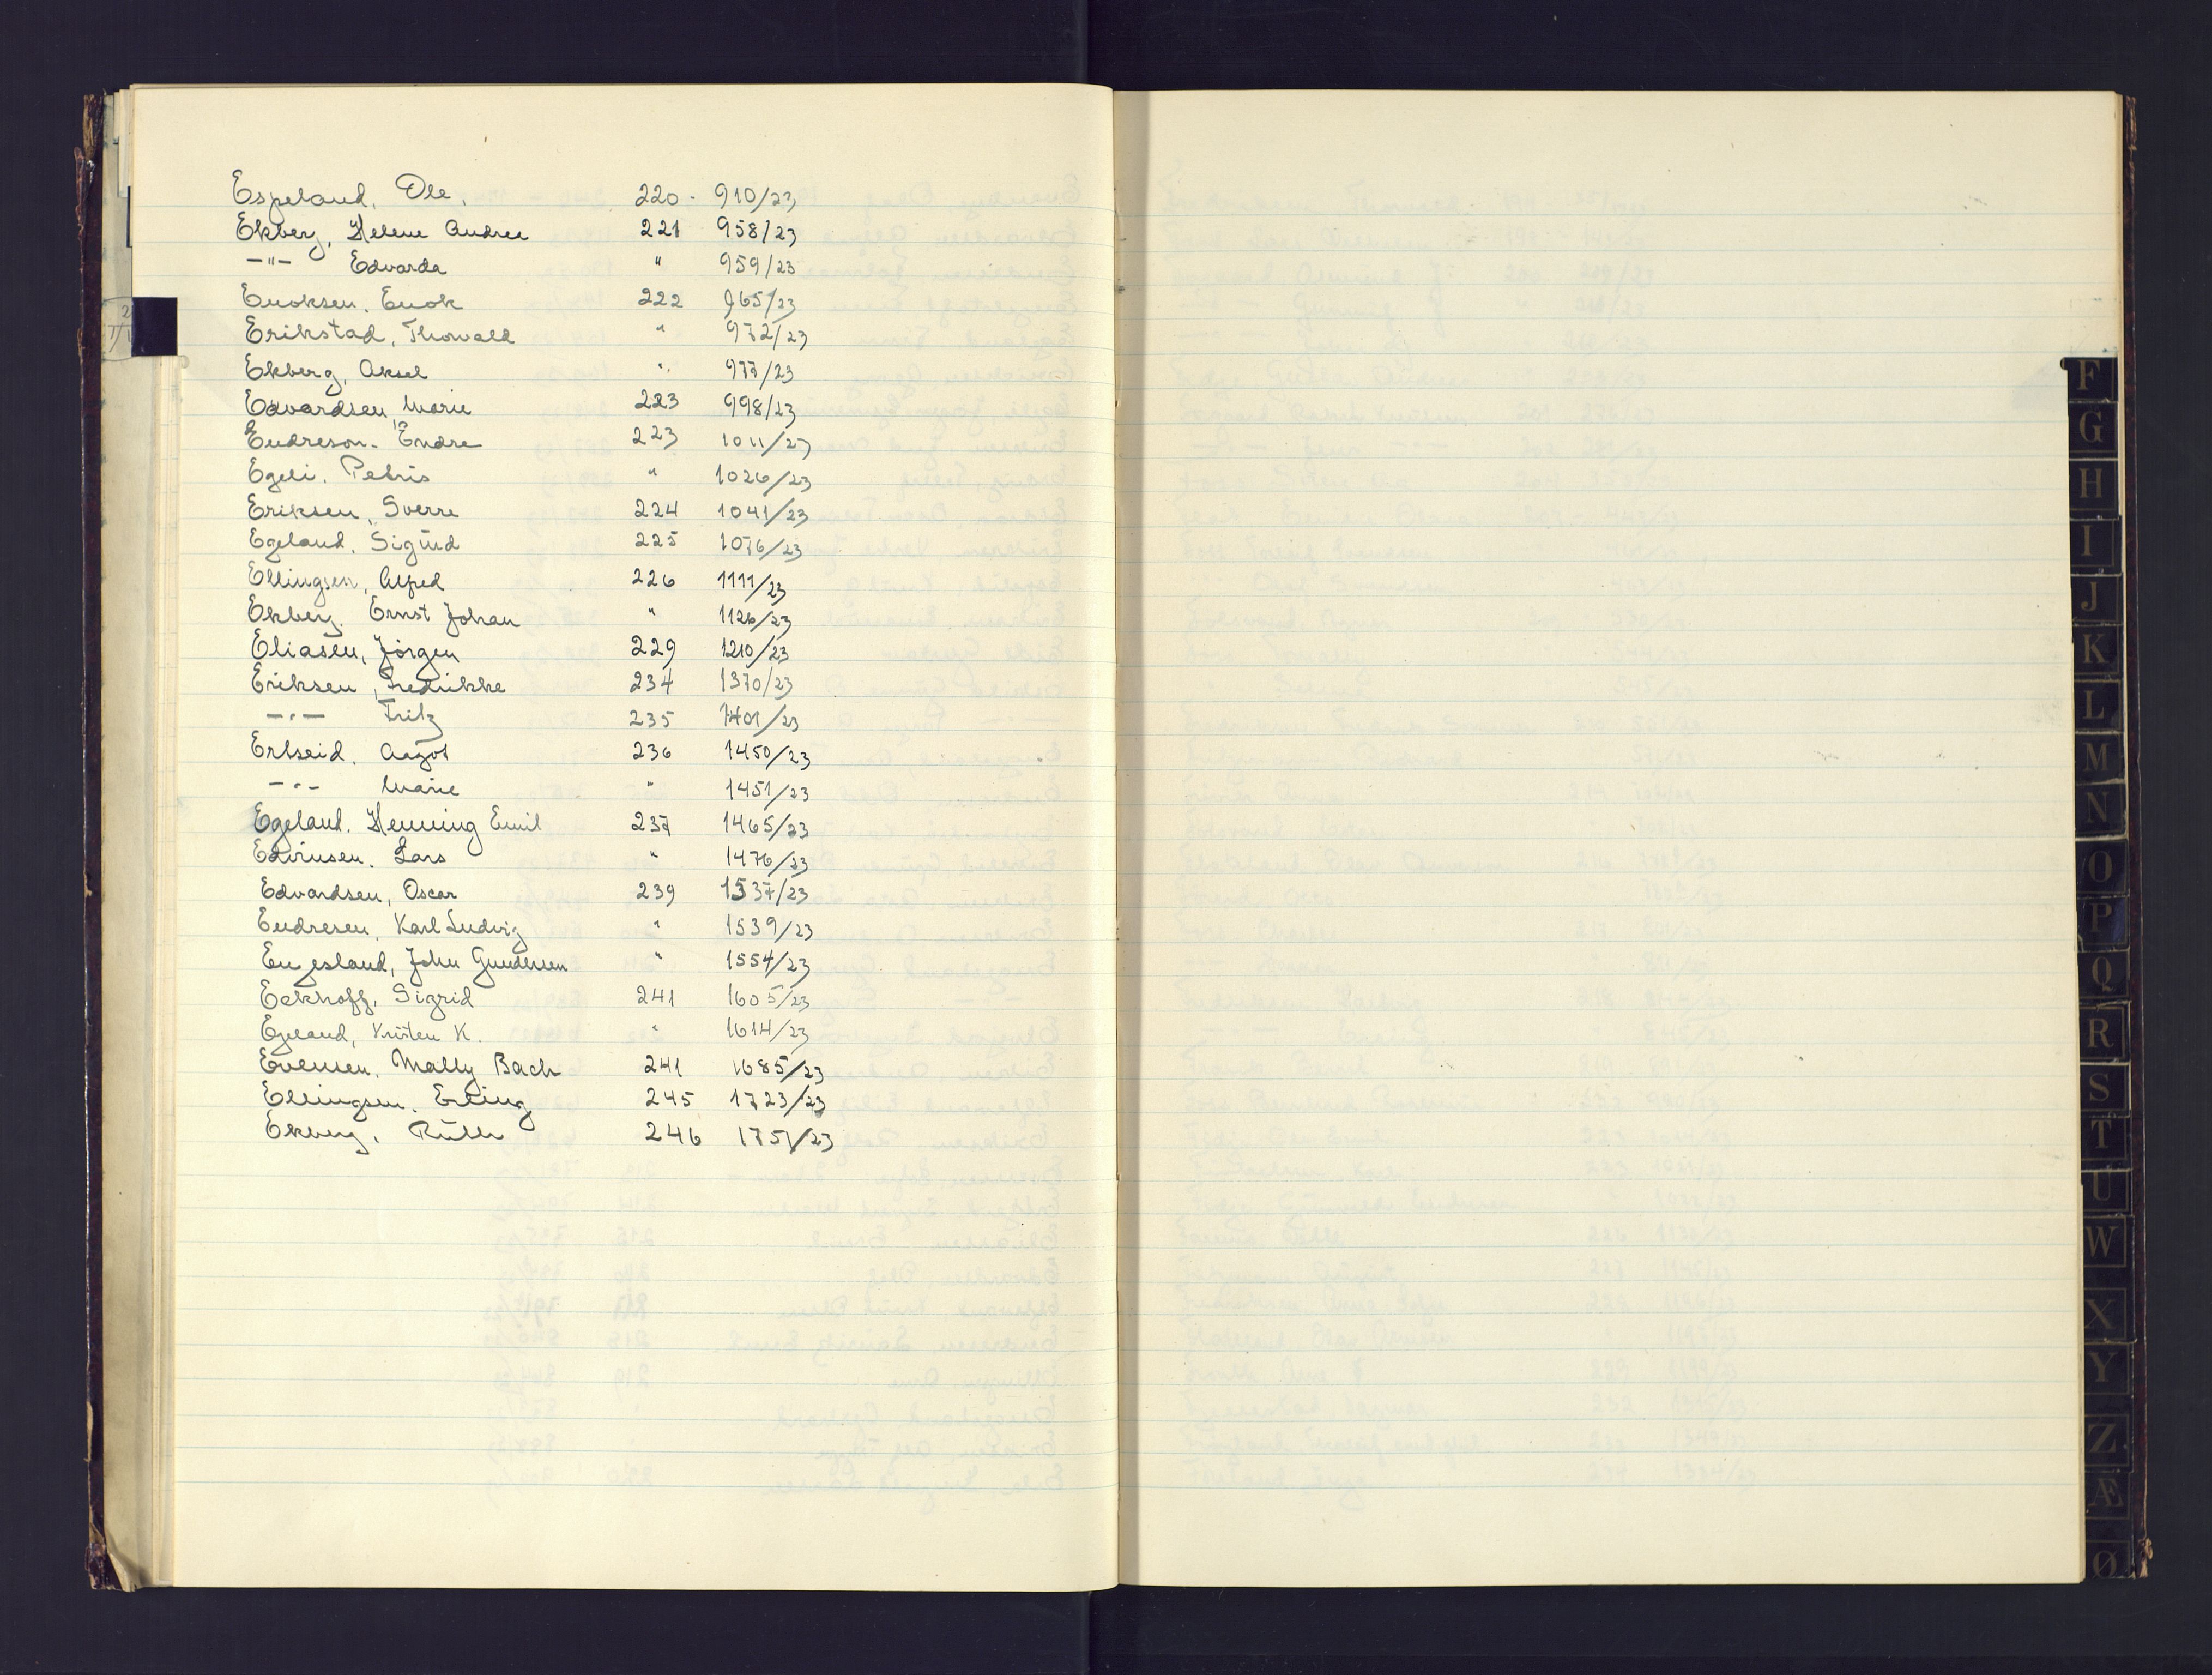 Espeland, Ole. 220. 910/23
Ekberg, Helene Andrea 221 958/23
—"— Edvarda " 959/23
Enoksen. Enok 222 965/23
Erikstad, Thorvald " 972/23
Ekberg, Aksel " 977/23
Edvardsen, Marie 223 998/23
Endreson. Endre 223 1011/23
Egeli. Petris " 1026/23
Eriksen, Sverre 224 1041/23
Egeland, Sigurd 225 1076/23
Ellingsen, Alfred 226 1111/23
Ekberg. Ernst Johan " 1126/23
Eliasen, Jørgen 229 1210/23
Eriksen, Fredrikke 234 1370/23
—"— Fritz 235 1401/23
Ertseid, Aagot 236 1450/23
—"— Marie " 1451/23
Egeland. Henning Emil 237 1465/23
Edvinsen. Lars " 1476/23
Edvardsen, Oscar 239 1537/23
Endresen, Karl Ludvig " 1539/23
Engesland, John Gundersen " 1554/23
Eckhoff, Sigrid 241 1605/23
Egeland, Kristen K. " 1614/23
Evensen. Mally Bach 241 1685/23
Ellingsen. Erling 245 1723/23
Ekberg, Ruth 246 1751/23
F
G
H
I
J
K
L
M
N
O
P
Q
R
S
T
U
W
X
Y
Z
Æ
Ø